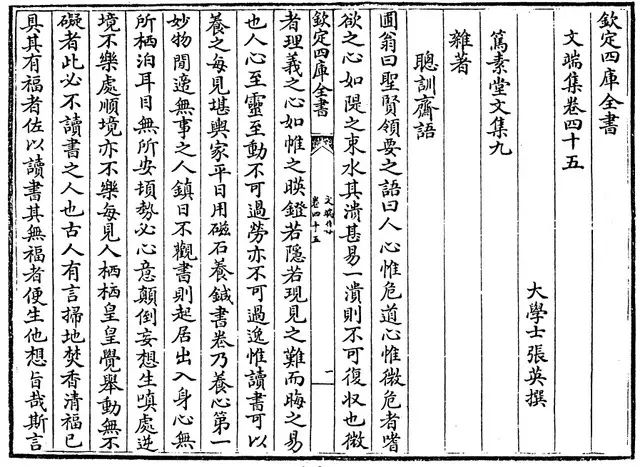 欽定四庫全書
文端集卷四十五
大學士張英撰
篤素堂文集九
雜著
聰訓齋語
圃翁曰聖賢領要之語曰人心惟危道心惟微危者嗜
欲之心如隄之束水其潰甚易一潰則不可復收也微
欽定四庫全書
文端集
卷四十五
一
者理義之心如帷之暎鐙若隱若現見之難而晦之易
也人心至靈至動不可過勞亦不可過逸惟讀書可以
養之每見堪輿家平日用磁石養鍼書卷乃養心第一
妙物閒適無事之人鎮日不觀書則起居出入身心無
所栖泊耳目無所安頓勢必心意顛倒妄想生嗔處逆
境不樂處順境亦不樂每見人栖栖皇皇覺舉動無不
礙者此必不讀書之人也古人有言掃地焚香清福已
具其有福者佐以讀書其無福者便生他想旨哉斯言